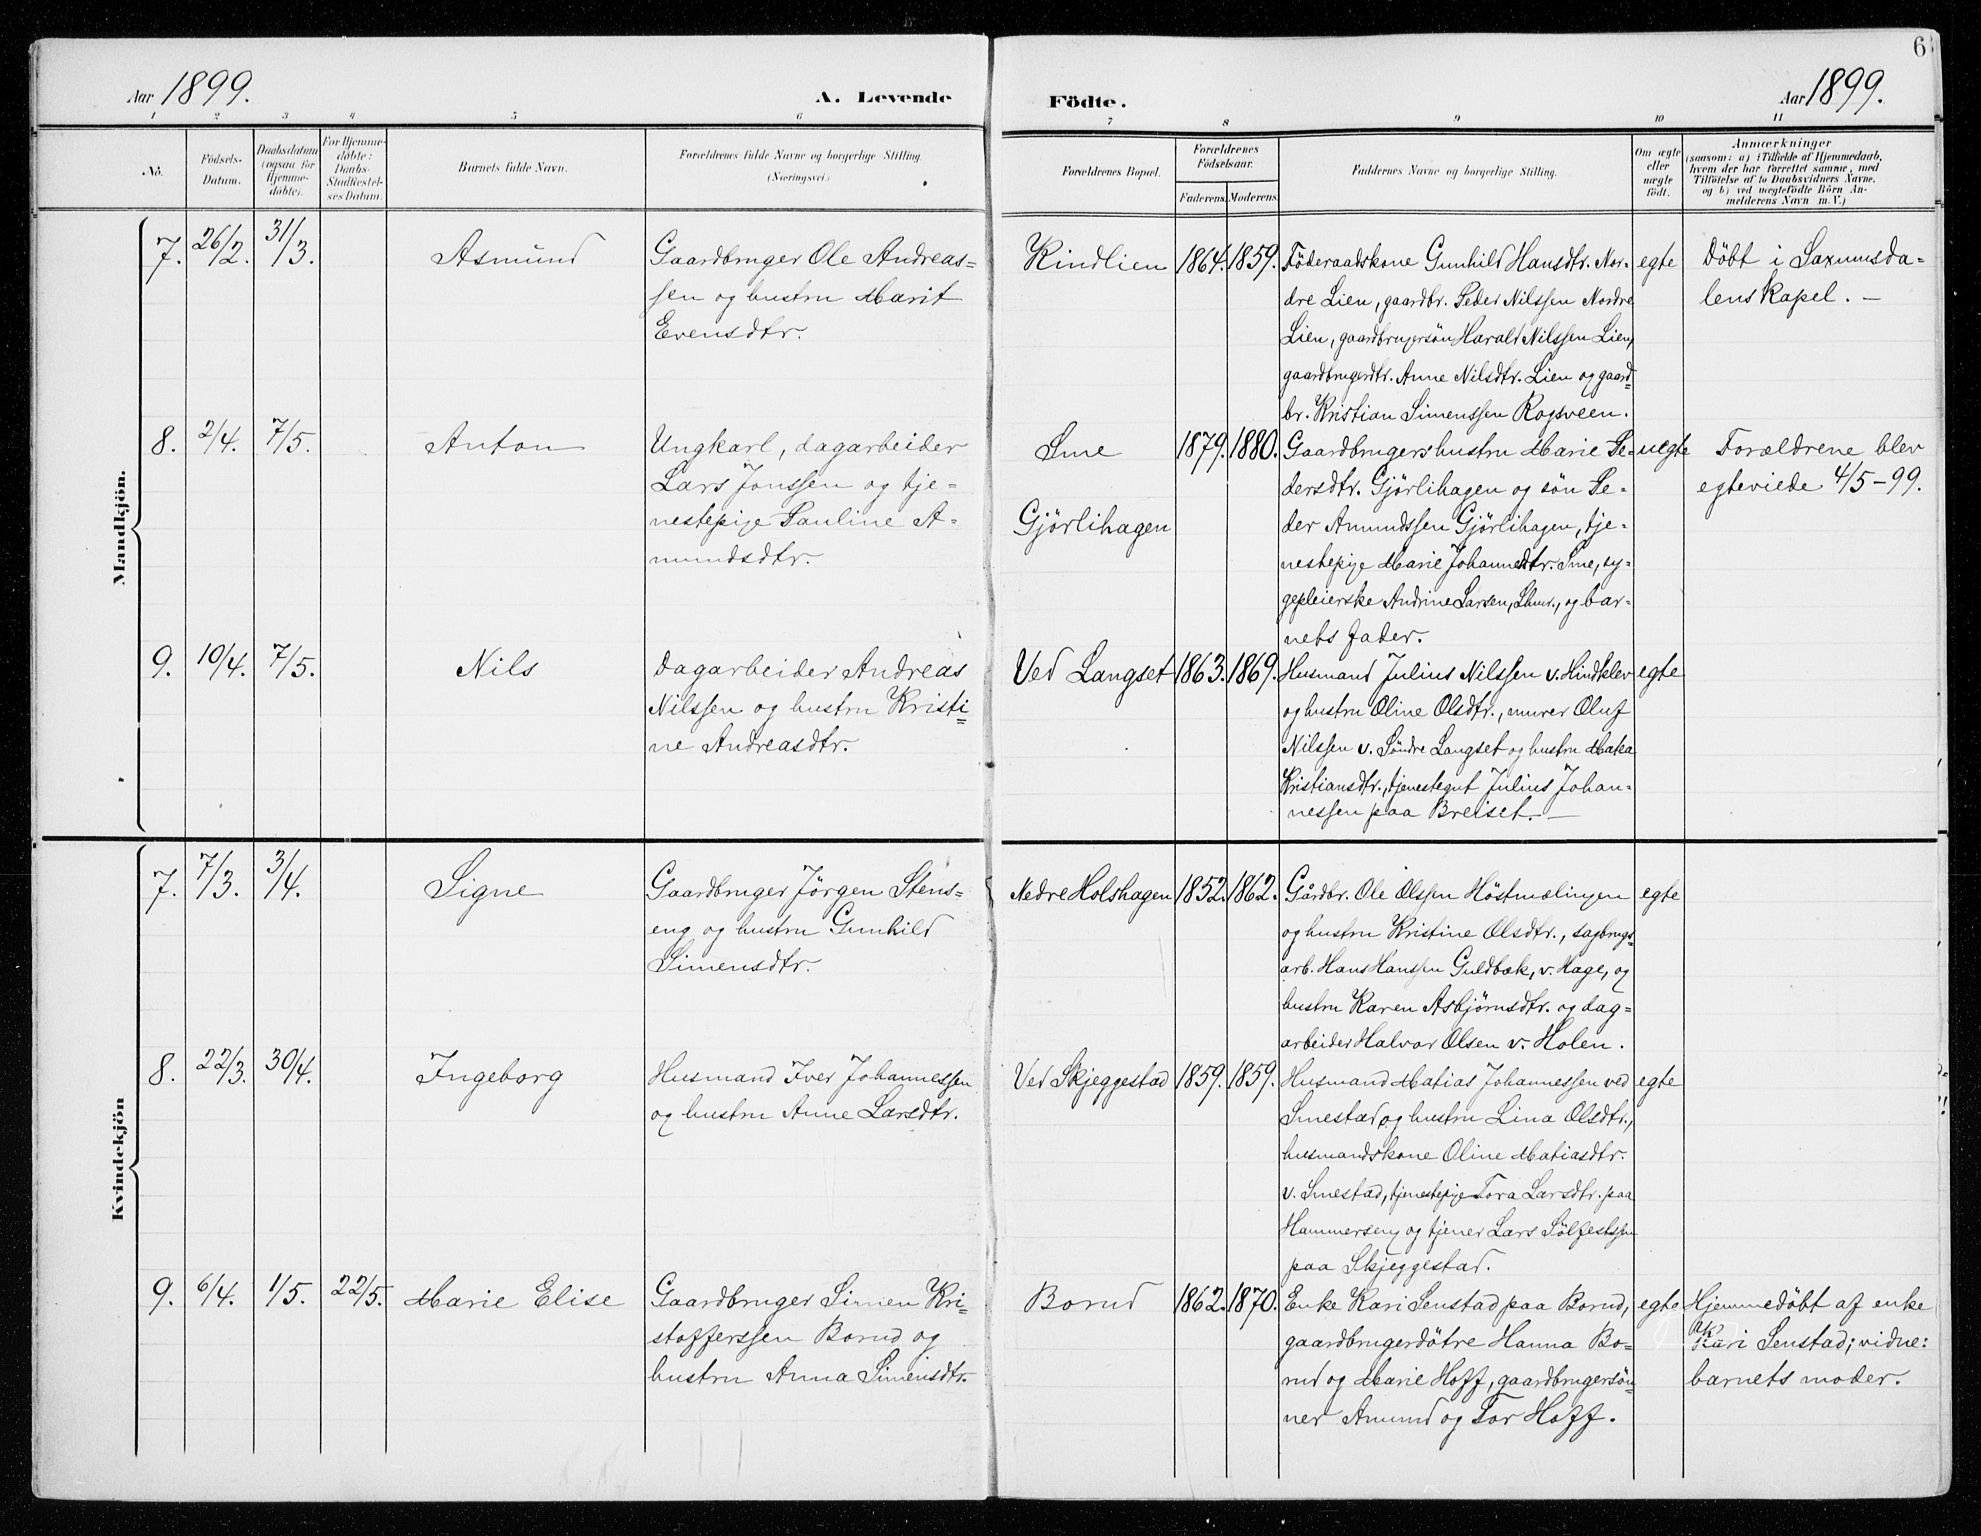 6
Aar 1899.
A. Levende
Födte.
Aar 1899.
1 2 3 4 5 6 7 8 9 10 11
No.
Födsels-
Datum.
Daabsdatum
(ogsaa for
Hjemme-
döbte).
For Hjemme-
döbte:
Daabs-
Stadfæstel-
ses Datum.
Barnets fulde Navn.
Forældrenes fulde Navne og borgerlige Stilling.
(Næringsvei.)
Forældrenes Bopæl.
Forældrenes
Födselsaar.
Faderens. Moderens.
Faddernes Navne og borgerlige Stilling.
Om ægte
eller
uægte
födt.
Anmærkninger
(saasom: a) i Tilfælde af Hjemmedaab,
hvem der har forrettet samme, med
Tilföielse af to Daabsvidners Navne,
og b) ved uægtefödte Börn An-
melderens Navn m. V.)
Mandkjön.
7. 26/2. 31/3. Asmund
Gaardbruger Ole Andreas-
sen og hustru Marit
Evensdtr.
Rindlien 1864. 1859.
Föderaadskone Gunhild Hansdtr. Nor-
dre Lien, gaardbr. Peder Nilssen Nordre
Lien, gaardbrugersön Harald Nilssen Lien,
gaardbrugerdtr. Anne Nilsdtr. Lien og gaard-
br. Kristian Simenssen Rogsveen.
egte
Döbt i Saxumsda-
lens Kapel. –
8. 2/4. 7/5. Anton
Ungkarl, dagarbeider
Lars Jonssen og tje-
nestepige Pauline A-
mundsdtr.
Sme
Gjörlihagen
1879. 1880.
Gaardbrugers hustru Marie Pe-
dersdtr. Gjörlihagen og sön Pe-
der Amundssen Gjörlihagen, tje-
nestepige Marie Johannesdtr. Sme, sy-
gepleierske Andrine Larsen, Lhmr., og bar-
nets fader.
uegte
Forældrene blev
egteviede 4/5-99.
9. 10/4. 7/5. Nils
Dagarbeider Andreas
Nilssen og hustru Kristi-
ne Andreasdtr.
Ved Langset 1863. 1869.
Husmand Julius Nilssen v. Hindklev
og hustru Oline Olsdtr., murer Oluf
Nilssen v. Söndre Langset og hustru Maka
Kristiansdtr., tjenestegut Julius Johan-
nessen paa Breiset. –
egte
Kvindekjön
7. 7/3. 3/4. Signe
Gaardbruger Jörgen Stens-
eng og hustru Gunhild
Simensdtr.
Nedre Holshagen 1852. 1862.
Gårdbr. Ole Olssen Höstmælingen
og hustru Kristine Olsdtr., sagbrugs-
arb. Hans Hanssen Guldbæk, v. Hage, og
hustru Karen Asbjörnsdtr. og dag-
arbeider Halvor Olsen v. Holen.
egte
8. 22/3. 30/4. Ingeborg
Husmand Iver Johannessen
og hustru Anne Larsdtr.
Ved Skjeggestad 1859. 1859.
Husmand Matias Johannessen ved
Smestad og hustru Lina Olsdtr.,
husmandskone Oline Matiasdtr.
v. Smestad, tjenestepige Tora Larsdtr. paa
Hammerseng og tjener Lars Sölfestssen
paa Skjeggestad.
egte
9. 6/4. 1/5. 22/5. Marie Elise
Gaardbruger Simen Kri-
stofferssen Borud og
hustru Anna Simensdtr.
Borud 1862. 1870.
Enke Kari Senstad paa Borud,
gaardbrugerdötre Hanna Bo-
rud og Marie Hoff, gaardbrugersön-
ner Amund og Tor Hoff.
egte
Hjemmedöbt af enke
Kari Senstad; vidne:
barnets moder.